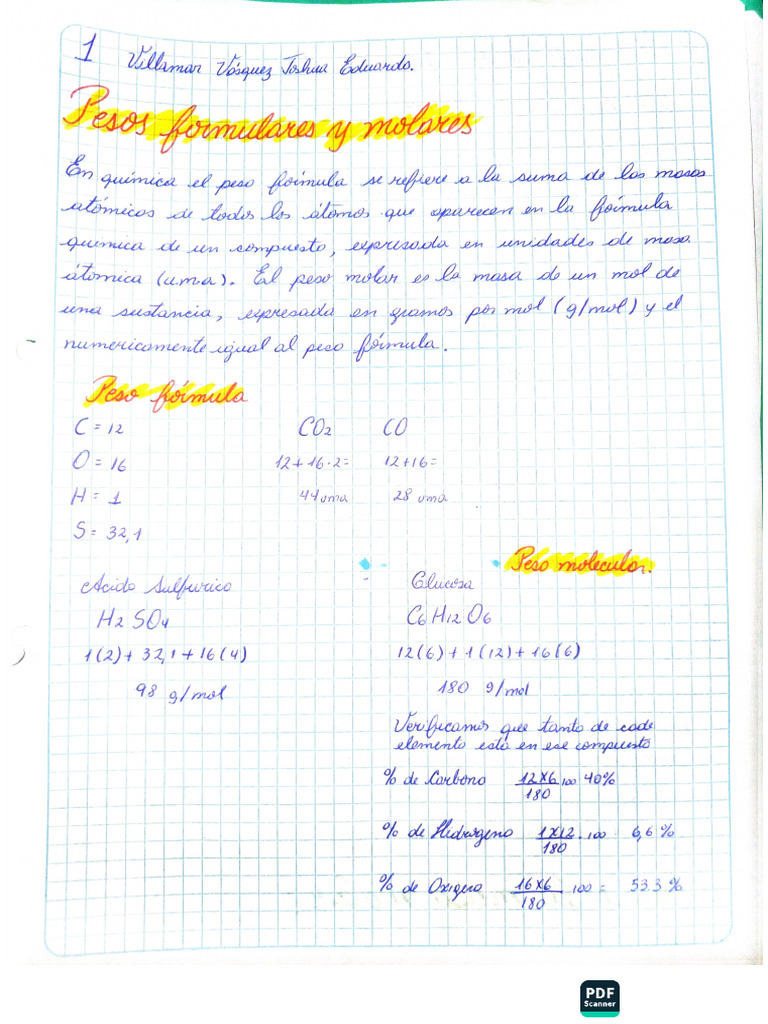 1 Villamar Vásquez Joshua Eduardo.
Pesos formulares y molares
En química el peso fórmula se refiere a la suma de las masas
atómicas de todos los átomos que aparecen en la fórmula
química de un compuesto, expresada en unidades de masa
átomica (u.m.a). El peso molar es la masa de un mol de
una sustancia, expresada en gramos por mol (g/mol) y el
numericamente igual al peso fórmula.
Peso fórmula
C = 12 CO2 CO
O = 16 12+16·2= 12+16=
H = 1 44 uma 28 uma
S = 32,1
Peso molecular.
Acido Sulfurico Glucosa
H2 SO4 C6 H12 O6
1(2)+ 32,1+16(4) 12(6)+1(12)+16(6)
98 g/mol 180 g/mol
Verificamos que tanto de cada
elemento está en ese compuesto
% de Carbono 12x6/180 100 40%
% de Hidrogeno 1x12/180 · 100 6,6 %
% de Oxigeno 16x6/180 100 = 53.3 %
PDF
Scanner